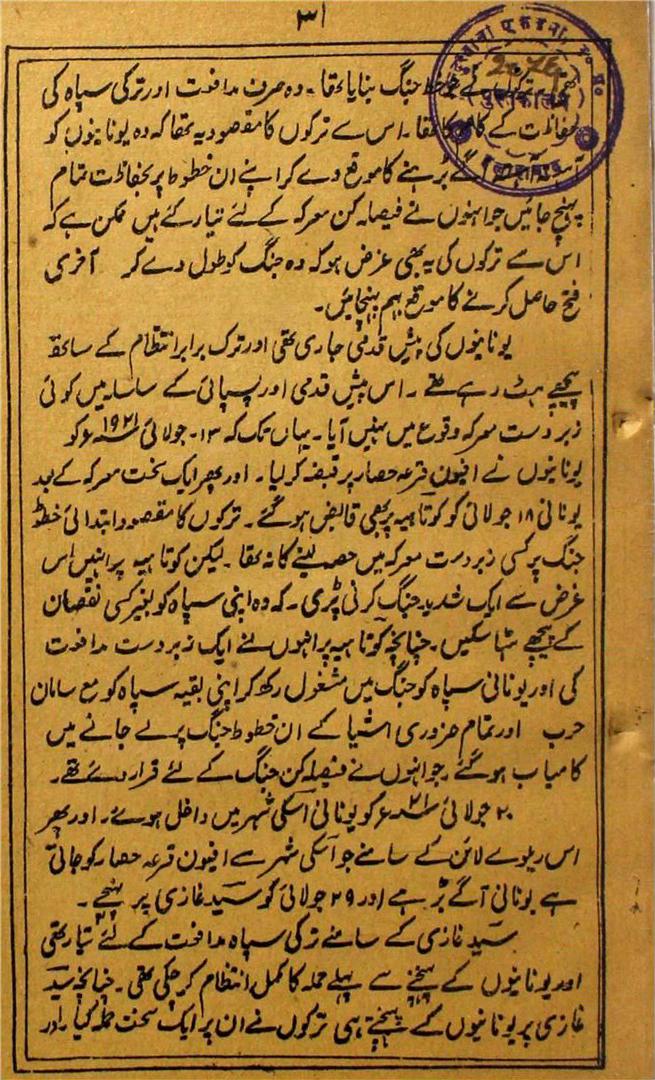 ۳۱
ترکوں نے جو خط جنگ بنایا تھا۔ وہ صرف مدافعت اور ترکی سپاہ کی
حفاظت کے کام کا تھا۔ اس سے ترکوں کا مقصود یہ تھا کہ وہ یونانیوں کو
آگے بڑہنے کا موقع دے کر اپنے ان خطوط پر بحفاظت تمام
پہنچ جائیں جو انہوں نے فیصلہ کن معرکہ کے لئے تیار کئے ہیں ممکن ہے کہ
اس سے ترکوں کی یہ بھی غرض ہو کہ وہ جنگ کو طول دے کر آخری
فتح حاصل کرنے کا موقع بہم پہنچائیں۔
یونانیوں کی پیش قدمی جاری تھی اور ترک برابر انتظام کے ساتھ
پیچھے ہٹ رہے تھے۔ اس پیش قدمی اور پسپائی کے سلسلہ میں کوئی
زبردست معرکہ وقوع میں نہیں آیا۔ یہاں تک کہ ۱۳۔ جولائی ۱۹۲۱ء کو
یونانیوں نے افیون قرہ حصار پر قبضہ کر لیا۔ اور پھر ایک سخت معرکہ کے بعد
یونانی ۱۸ جولائی کو کوتاہیہ پر بھی قابض ہو گئے۔ ترکوں کا مقصود ابتدائی خط
جنگ پر کسی زبردست معرکہ میں حصہ لینے کا نہ تھا۔ لیکن کوتاہیہ پر انہیں اس
غرض سے ایک شدید جنگ کرنی پڑی۔ کہ وہ اپنی سپاہ کو بغیر کسی نقصان
کے پیچھے ہٹا سکیں۔ چنانچہ کوتاہیہ پر انہوں نے ایک زبردست مدافعت
کی اور یونانی سپاہ کو جنگ میں مشغول رکھ کر اپنی بقیہ سپاہ کو مع سامان
حرب اور تمام ضروری اشیا کے ان خطوط جنگ پر لے جانے میں
کامیاب ہو گئے۔ جو انہوں نے فیصلہ کن جنگ کے لئے قرار دئے تھے۔
۲۰ جولائی ۲۱ء کو یونانی اسکی شہر میں داخل ہوئے۔ اور پھر
اس ریلوے لائن کے سامنے جو اسکی شہر سے افیون قرہ حصار کو جاتی
ہے یونانی آگے بڑہے اور ۲۹ جولائی کو سید غازی پر پہنچے۔
سید غازی کے سامنے ترکی سپاہ مدافعت کے لئے تیار تھی
اور یونانیوں کے پہنچنے سے پہلے حملہ کا مکمل انتظام کر چکی تھی۔ چنانچہ سید
غازی پر یونانیوں کے پہنچتے ہی ترکوں نے ان پر ایک سخت حملہ کیا۔ اور
पुस्तकालय